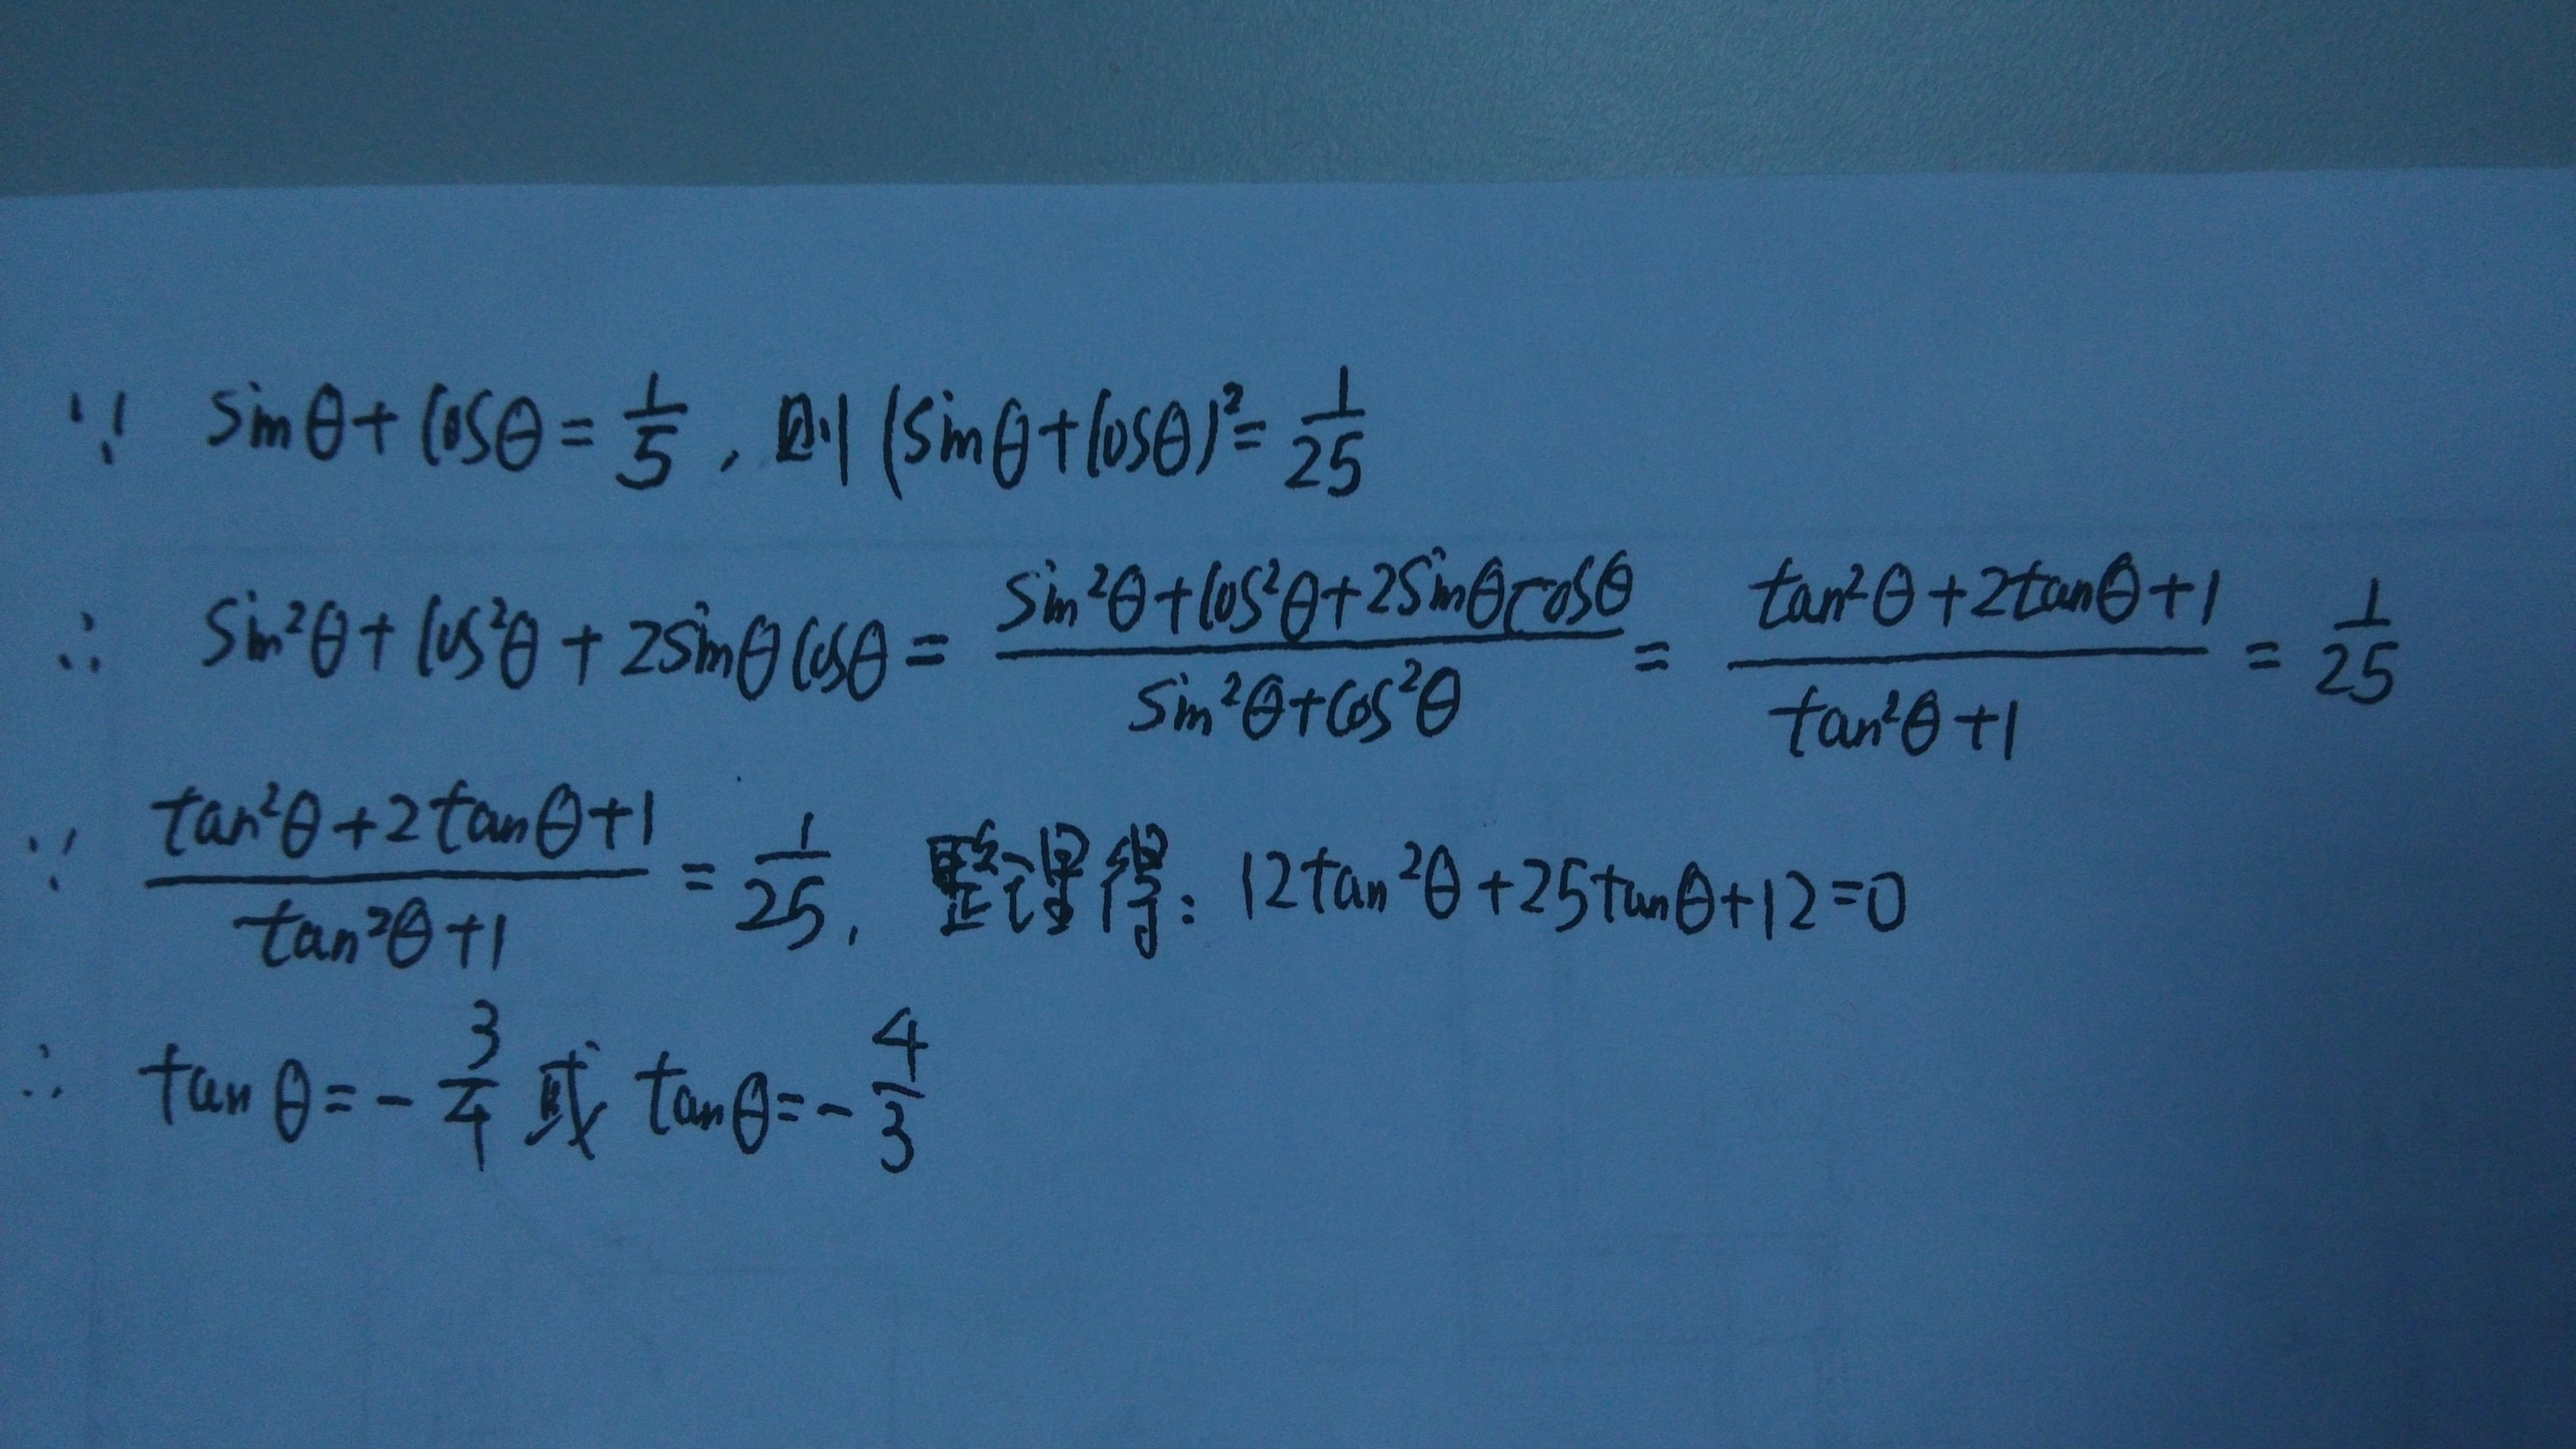 ∵ sinθ+cosθ=1/5，则(sinθ+cosθ)²=1/25
∴ sin²θ+cos²θ+2sinθcosθ=(sin²θ+cos²θ+2sinθcosθ)/(sin²θ+cos²θ)=(tan²θ+2tanθ+1)/(tan²θ+1)=1/25
∵ (tan²θ+2tanθ+1)/(tan²θ+1)=1/25，整理得：12tan²θ+25tanθ+12=0
∴ tanθ=-3/4 或 tanθ=-4/3